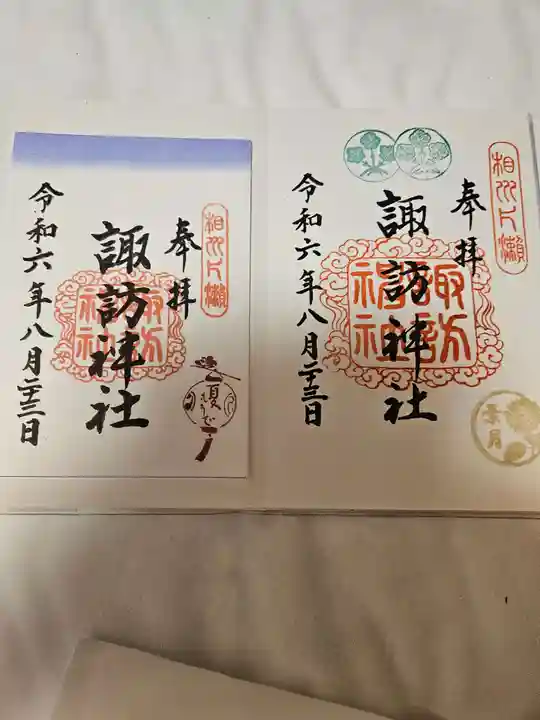 相州片瀬
奉拝
諏訪神社
諏訪神社
令和六年八月二十三日
夏
もうで
相州片瀬
奉拝
諏訪神社
諏訪神社
令和六年八月二十三日
葉月